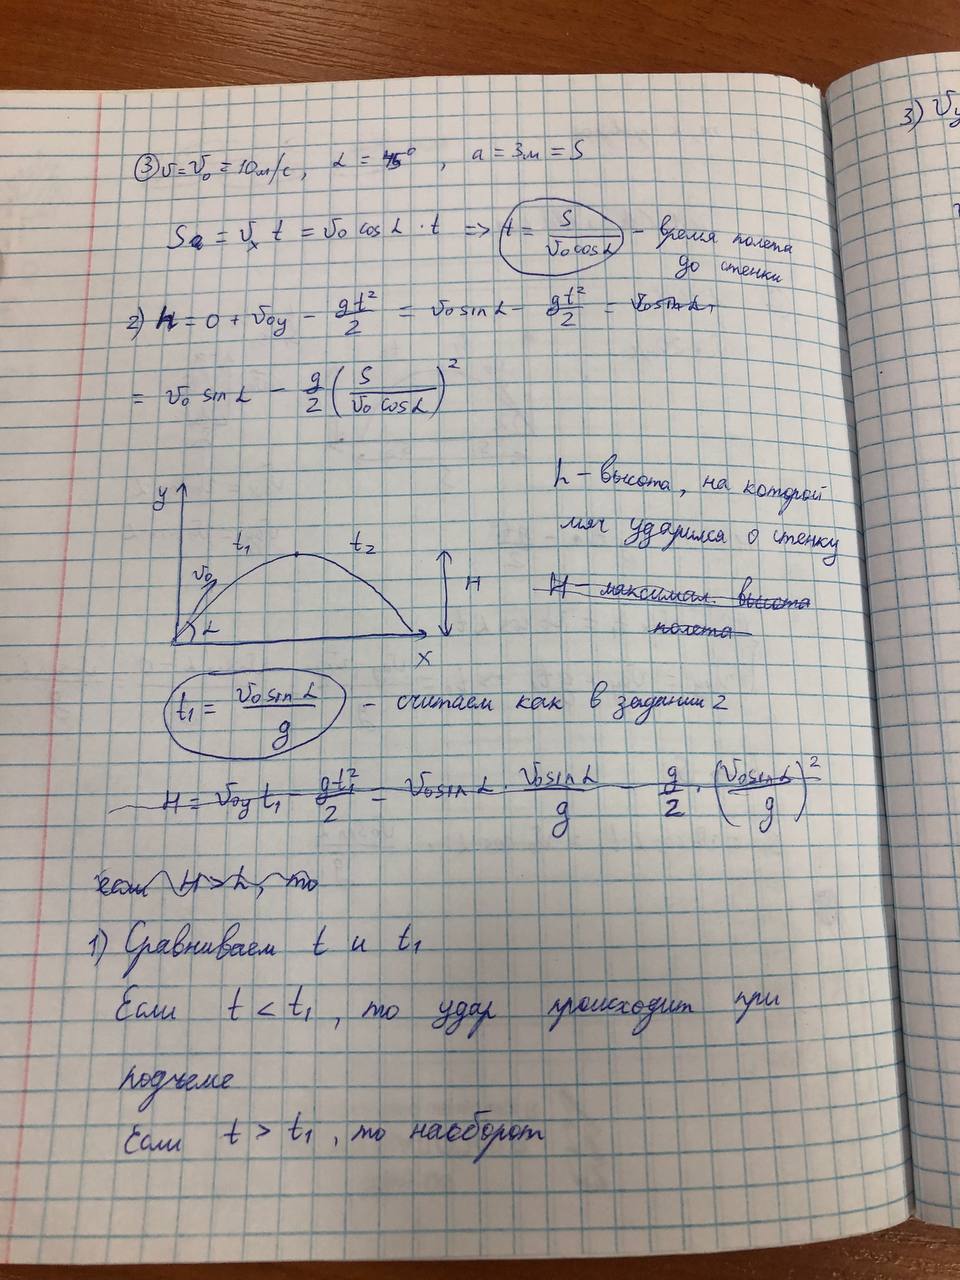 ③ υ = υ₀ = 10 м/с, α = 45°, a = 3м = S
Sa = υₓ t = υ₀ cos α · t => t = S / (υ₀ cos α) – время полета
до стенки
2) h = 0 + υ₀y – gt²/2 = υ₀ sin α – gt²/2 = υ₀ sin α
= υ₀ sin α – g/2 (S / (υ₀ cos α))²
h – высота, на которой
мяч ударился о стенку
H – максимал. высота
полета
y
t₁ t₂
υ₀
H
α
x
t₁ = υ₀ sin α / g – считаем как в задании 2
H = υ₀y t₁ – gt₁²/2 = υ₀ sin α · υ₀ sin α / g – g/2 · (υ₀ sin α / g)²
если H > h, то
1) Сравниваем t и t₁
Если t < t₁, то удар происходит при
подъеме
Если t > t₁, то наоборот
3) υy